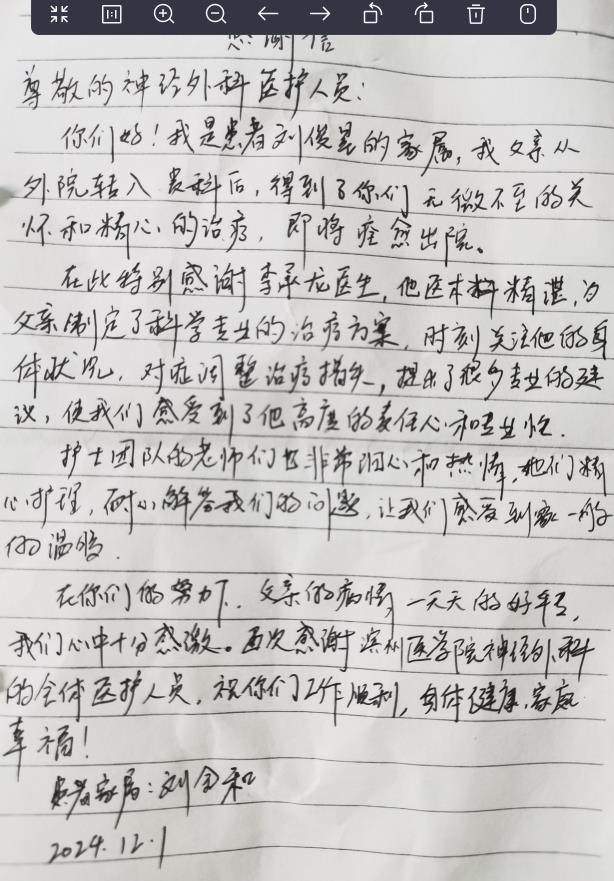 感谢信
尊敬的神经外科医护人员：
你们好！我是患者刘俊星的家属，我父亲从
外院转入贵科后，得到了你们无微不至的关
怀和精心的治疗，即将痊愈出院。
在此特别感谢李承龙医生，他医术精湛，为
父亲制定了科学专业的治疗方案，时刻关注他的身
体状况，对症调整治疗措施，提出了很多专业的建
议，使我们感受到了他高度的责任心和专业性．
护士团队的老师们也非常细心和热情，她们精
心护理，耐心解答我们的问题，让我们感受到家一般
的温暖．
在你们的努力下，父亲的病情，一天天的好转，
我们心中十分感激。再次感谢滨州医学院神经外科
的全体医护人员，祝你们工作顺利，身体健康，家庭
幸福！
患者家属：刘全和
2024.12.1